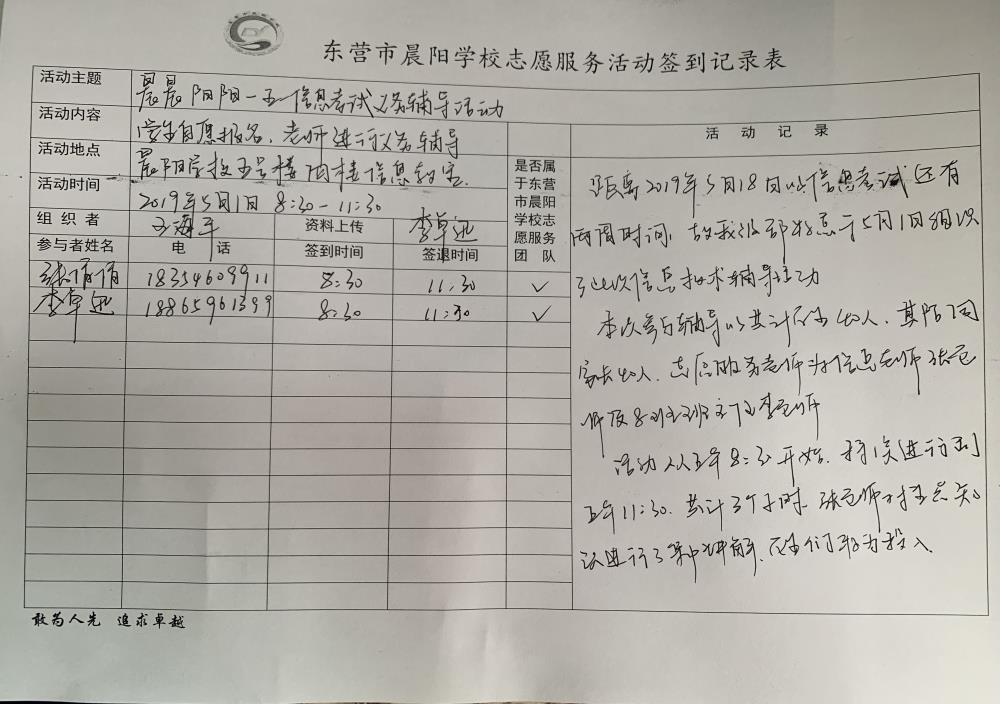 东营市晨阳学校志愿服务活动签到记录表
活动主题 晨晨阳阳一五一信息考试义务辅导活动
活动内容 学生自愿报名,老师进行义务辅导
活动地点 晨阳学校五号楼四楼信息教室
活动时间 2019年5月1日 8:30-11:30
组织者 王海平 资料上传 李卓迅
是否属于东营市晨阳学校志愿服务团队
参与者姓名 电话 签到时间 签退时间
张倩倩 18354609911 8:30 11:30 ✓
李卓迅 18865961399 8:30 11:30 ✓
活动记录
距离2019年5月18日的信息考试还有
两周时间,故我级部特意于5月1日组织
了此次信息技术辅导活动
本次参与辅导的共计学生40人,其陪同
家长40人,志愿服务老师为信息老师张老
师及8班主任李老师
活动从上午8:30开始,持续进行到
上午11:30,共计3个小时,张老师对重点知
识进行了集中讲解,学生们较为投入
敢为人先 追求卓越